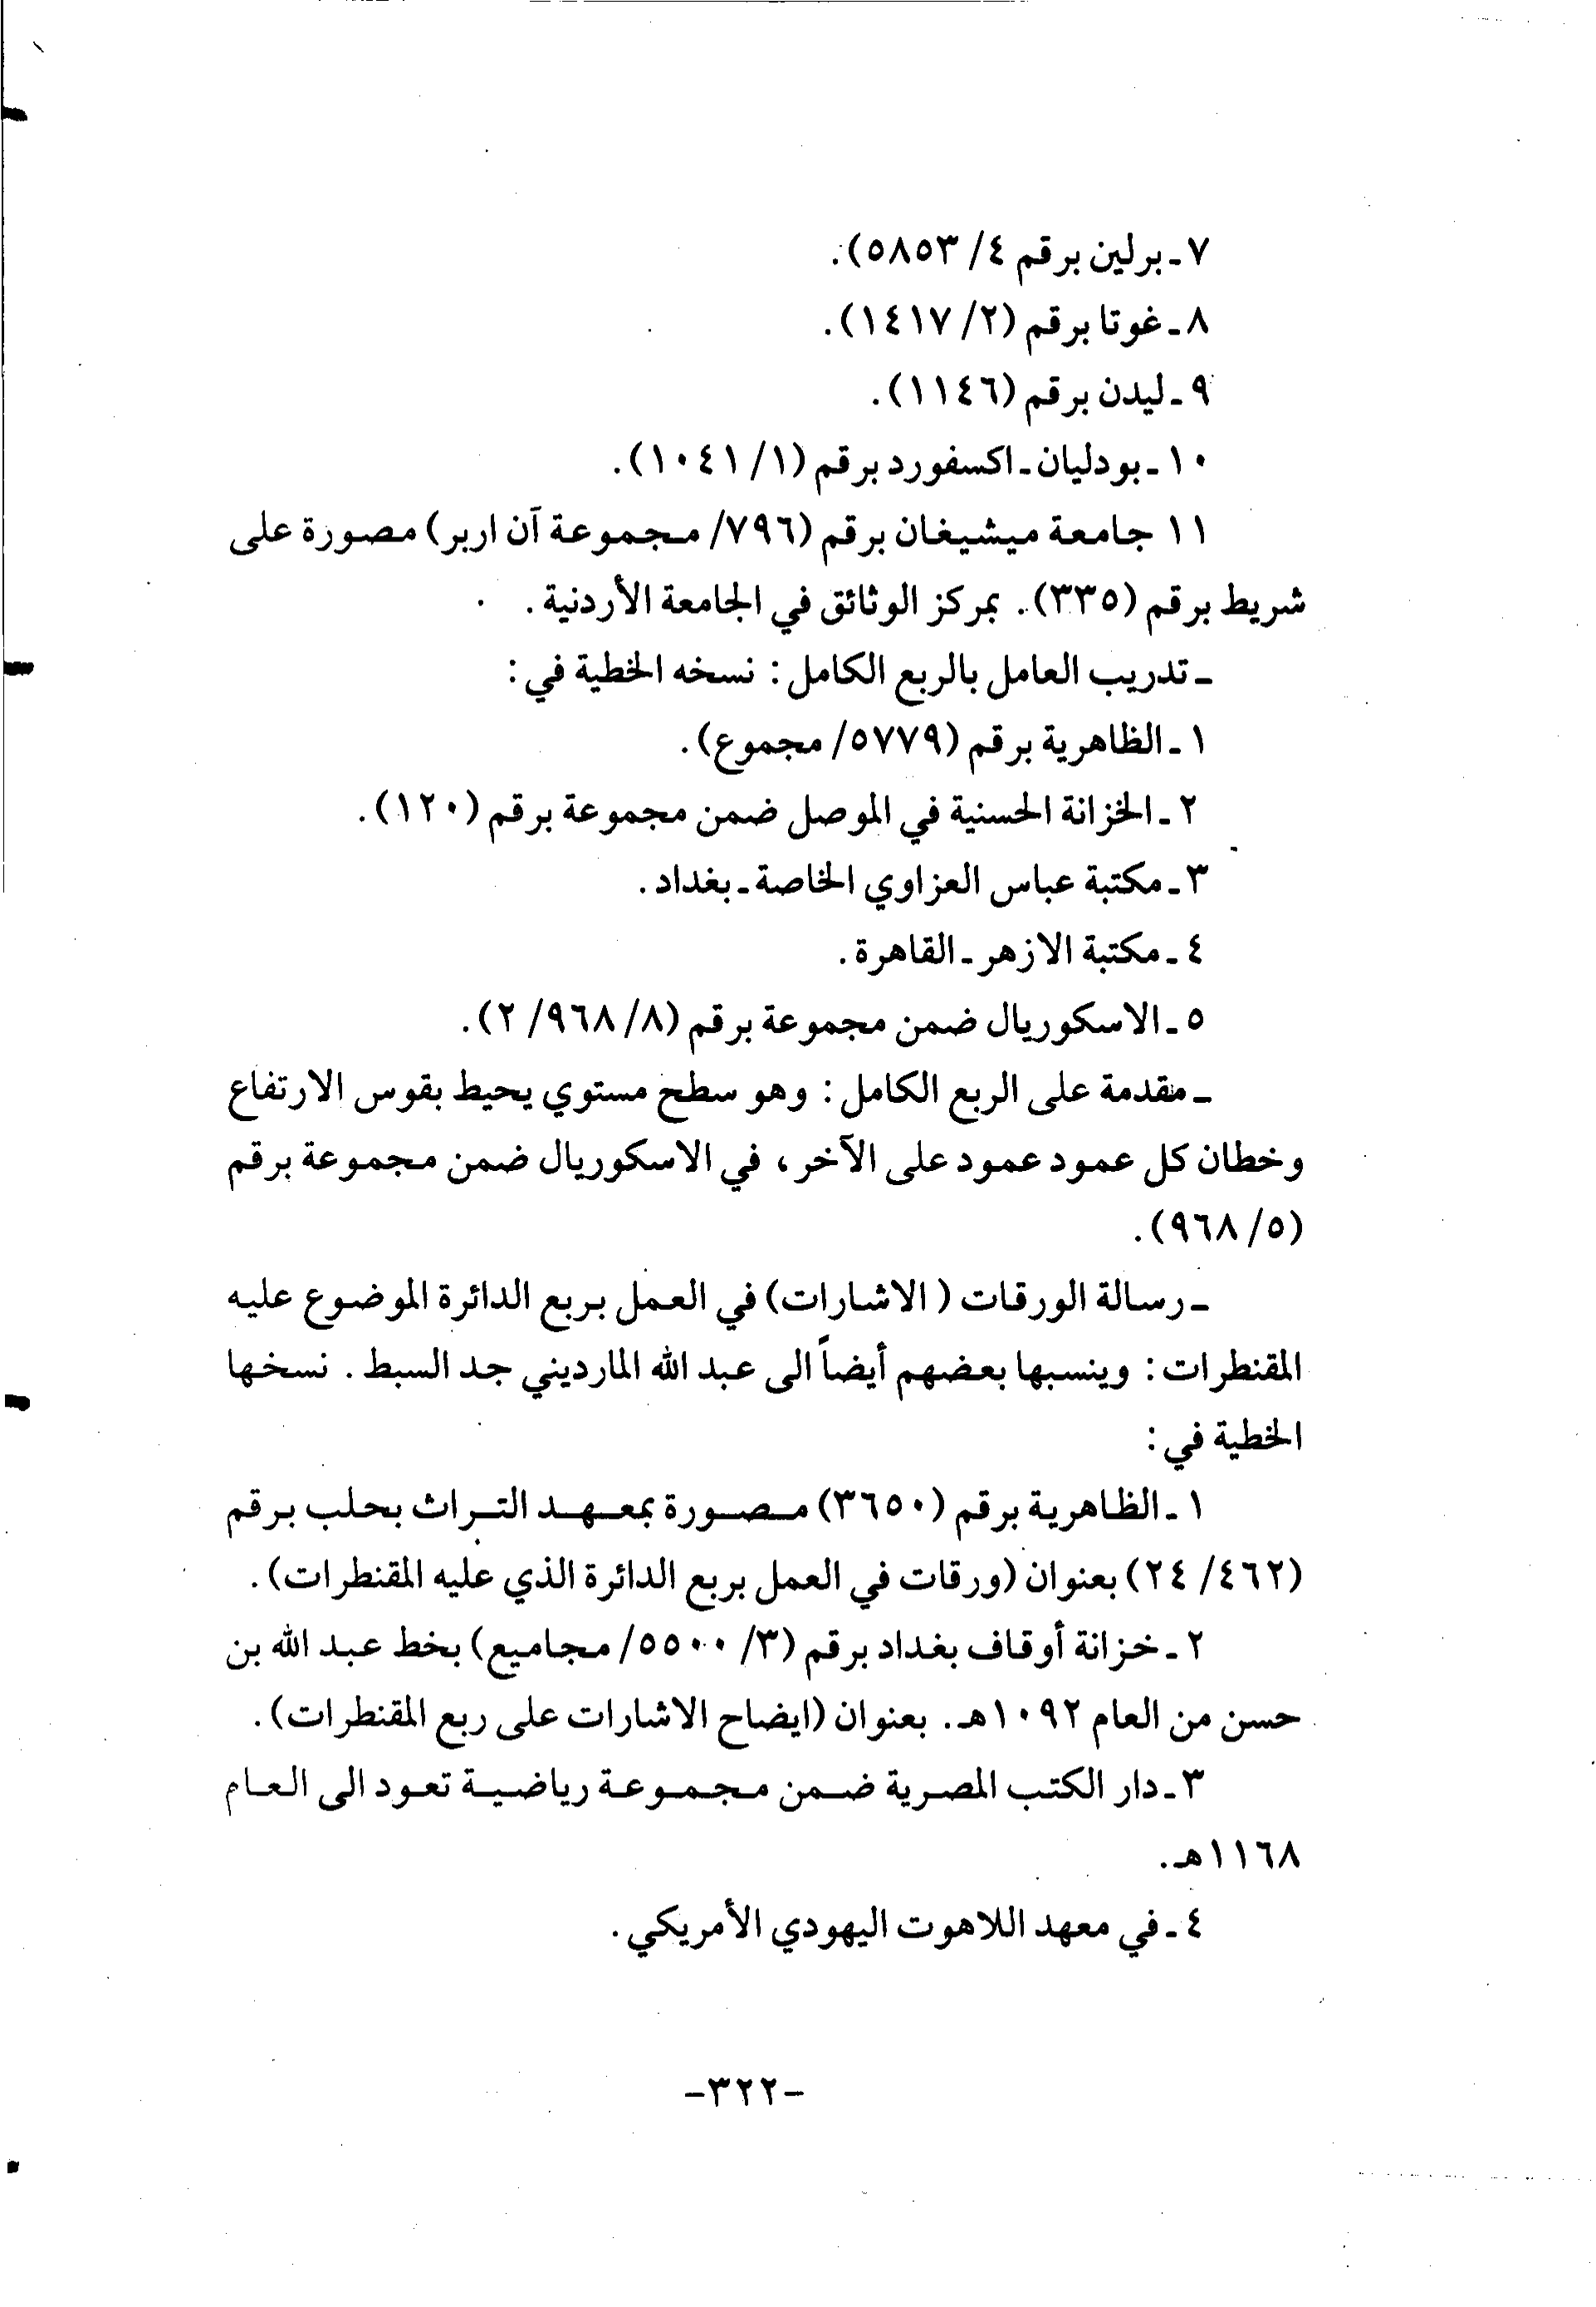 ٧ ـ برلين برقم ٤/ ٥٨٥٣).
٨ ـ غوتا برقم (٢/ ١٤١٧).
٩ ـ ليدن برقم (١١٤٦).
١٠ ـ بودليان ـ اكسفورد برقم (١/ ١٠٤١).
١١ جامعة ميشيغان برقم (٧٩٦/ مجموعة آن اربر) مصورة على
شريط برقم (٣٣٥). بمركز الوثائق في الجامعة الأردنية.
ـ تدريب العامل بالربع الكامل: نسخه الخطية في:
١ ـ الظاهرية برقم (٥٧٧٩/ مجموع).
٢ ـ الخزانة الحسنية في الموصل ضمن مجموعة برقم (١٢٠).
٣ ـ مكتبة عباس العزاوي الخاصة ـ بغداد.
٤ ـ مكتبة الازهر ـ القاهرة.
٥ ـ الاسكوريال ضمن مجموعة برقم (٨/ ٩٦٨/ ٢).
ـ مقدمة على الربع الكامل: وهو سطح مستوي يحيط بقوس الارتفاع
وخطان كل عمود عمود على الآخر، في الاسكوريال ضمن مجموعة برقم
(٥/ ٩٦٨).
ـ رسالة الورقات (الاشارات) في العمل بربع الدائرة الموضوع عليه
المقنطرات: وينسبها بعضهم أيضاً الى عبد الله المارديني جد السبط. نسخها
الخطية في:
١ ـ الظاهرية برقم (٣٦٥٠) مصورة بمعهد التراث بحلب برقم
(٤٦٢/ ٢٤) بعنوان (ورقات في العمل بربع الدائرة الذي عليه المقنطرات).
٢ ـ خزانة أوقاف بغداد برقم (٣/ ٥٥٠٠/ مجاميع) بخط عبد الله بن
حسن من العام ١٠٩٢هـ. بعنوان (ايضاح الاشارات على ربع المقنطرات).
٣ ـ دار الكتب المصرية ضمن مجموعة رياضية تعود الى العام
١١٦٨هـ.
٤ ـ في معهد اللاهوت اليهودي الأمريكي.
-٣٢٢-